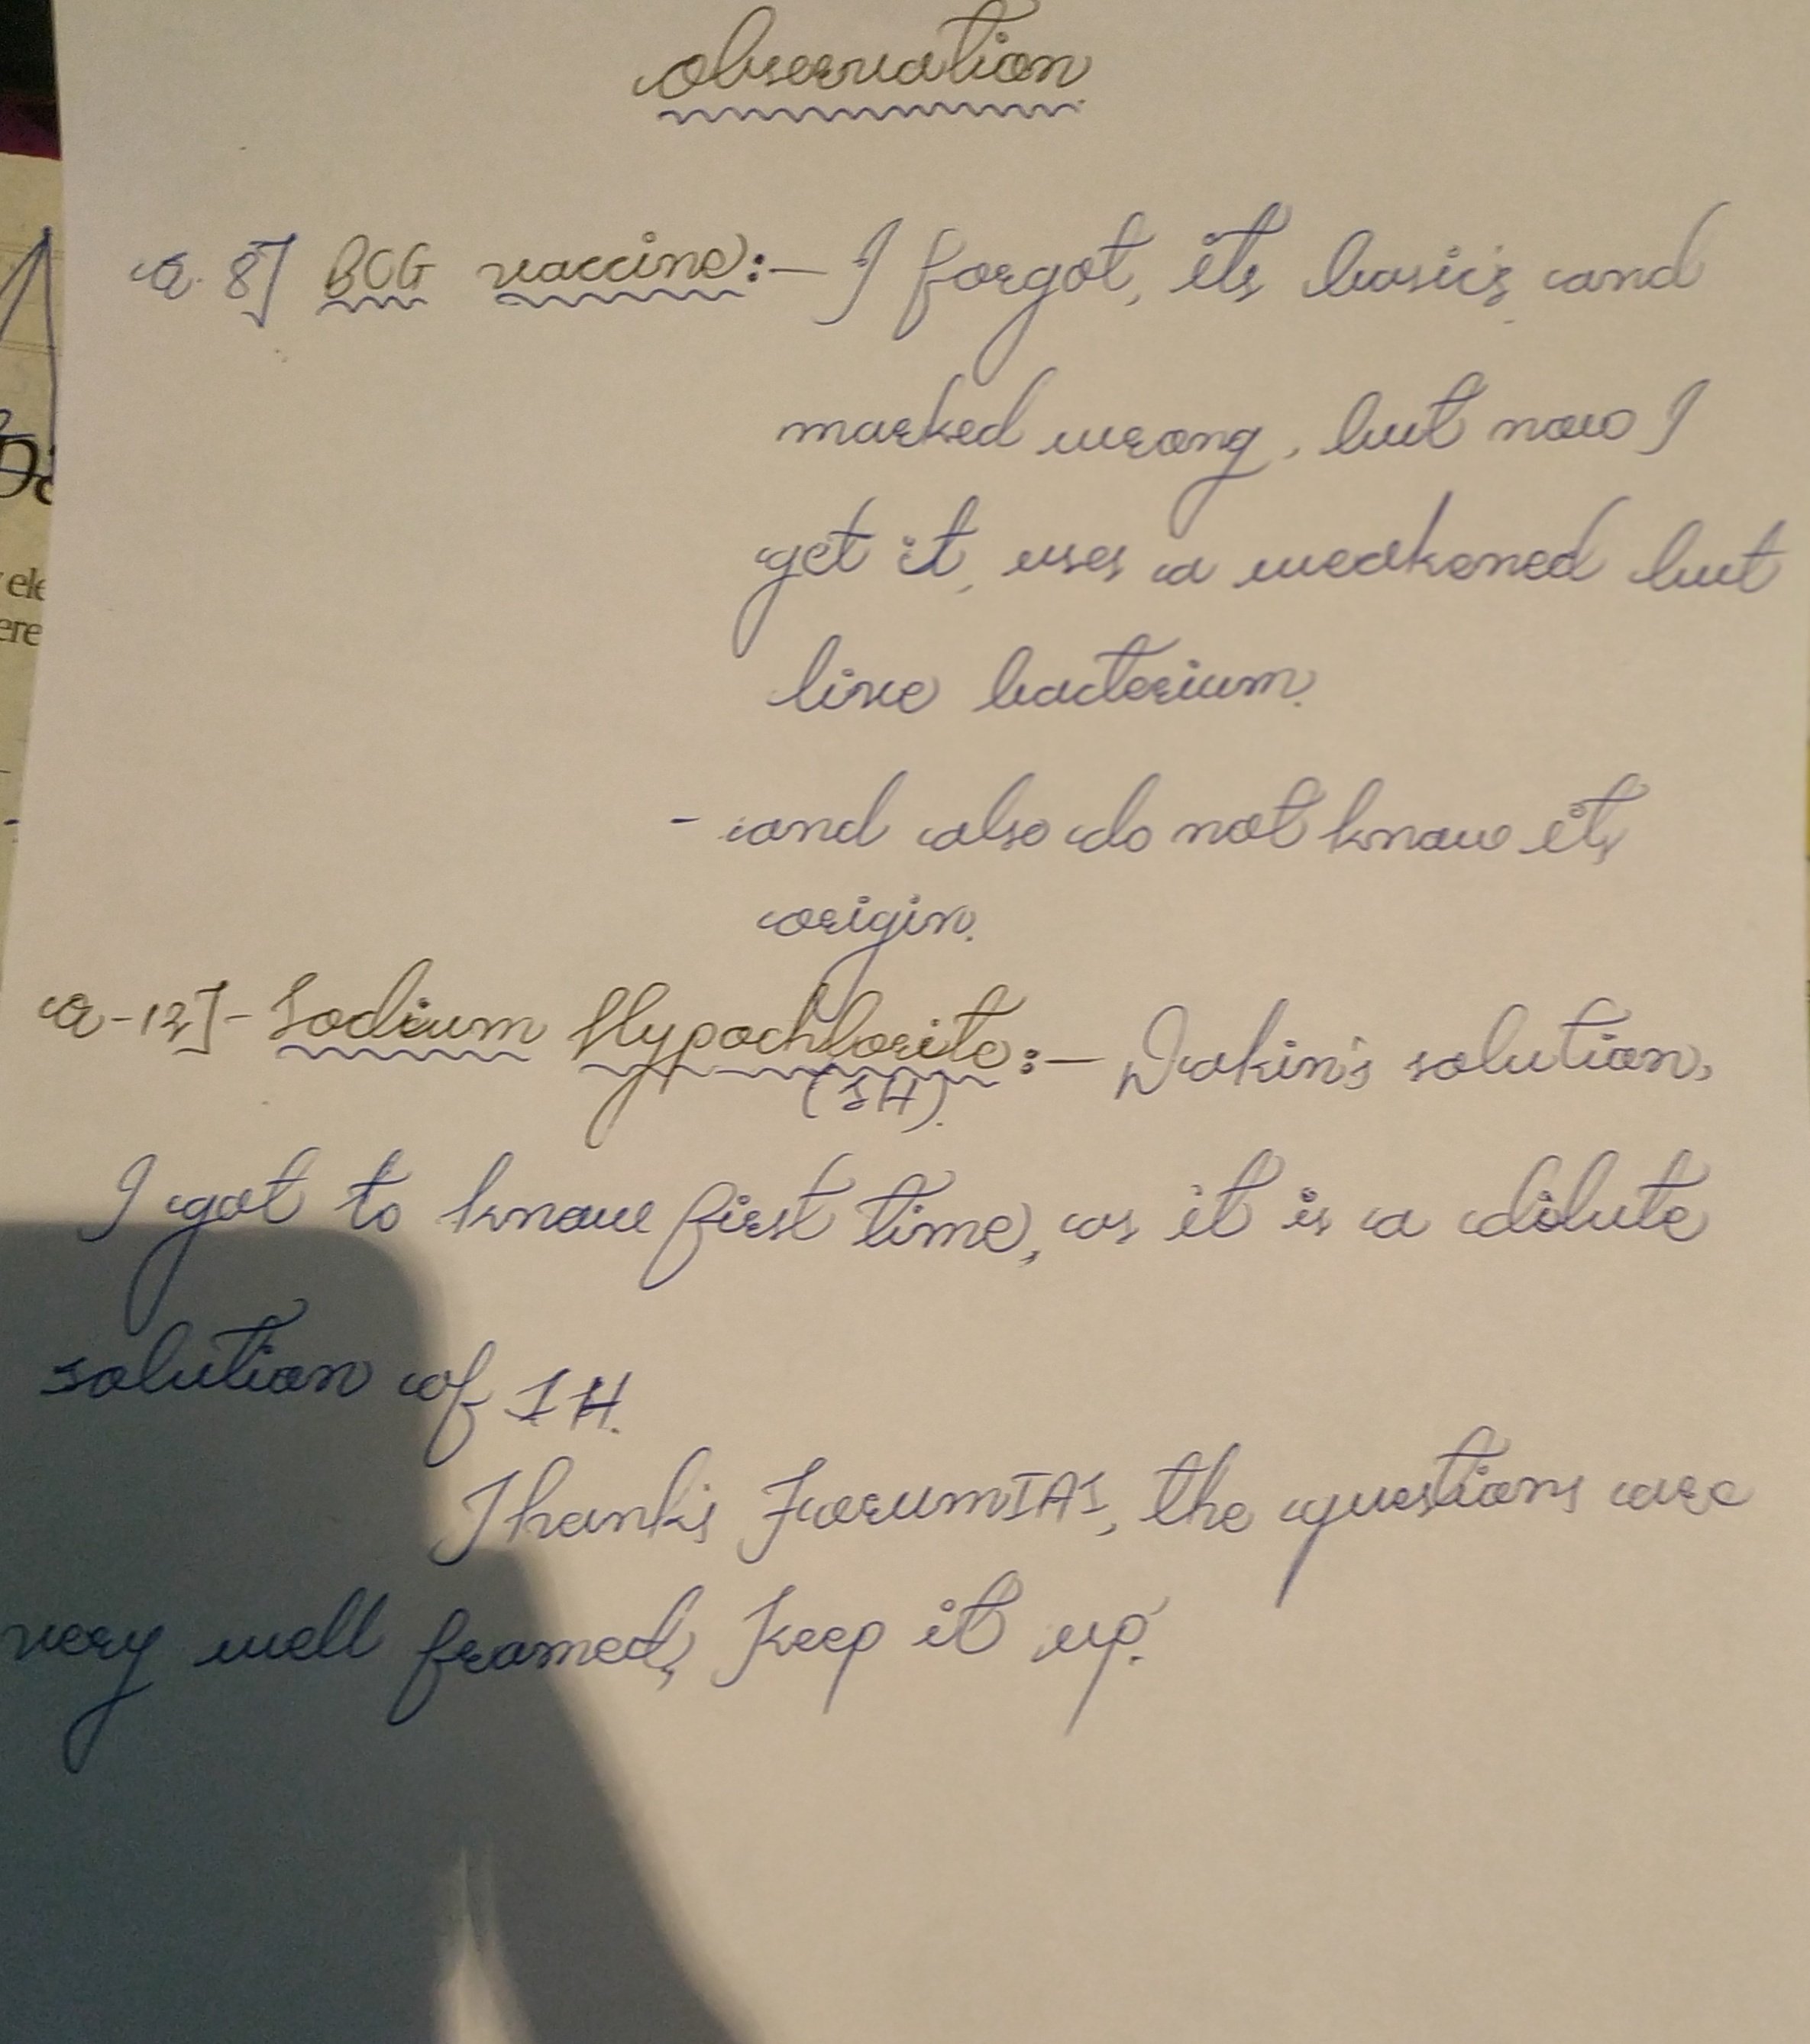 observation
Q. 8] BCG vaccine:- I forgot, its basic's and
marked wrong, but now I
get it, uses a weakened but
live bacterium.
- and also do not know its
origin.
Q-12]- Sodium Hypochlorite:- Dakin's solution,
(SH).
I got to know first time, as it is a dilute
solution of SH.
Thank's ForumIAS, the questions are
very well framed, keep it up.
ele
ere